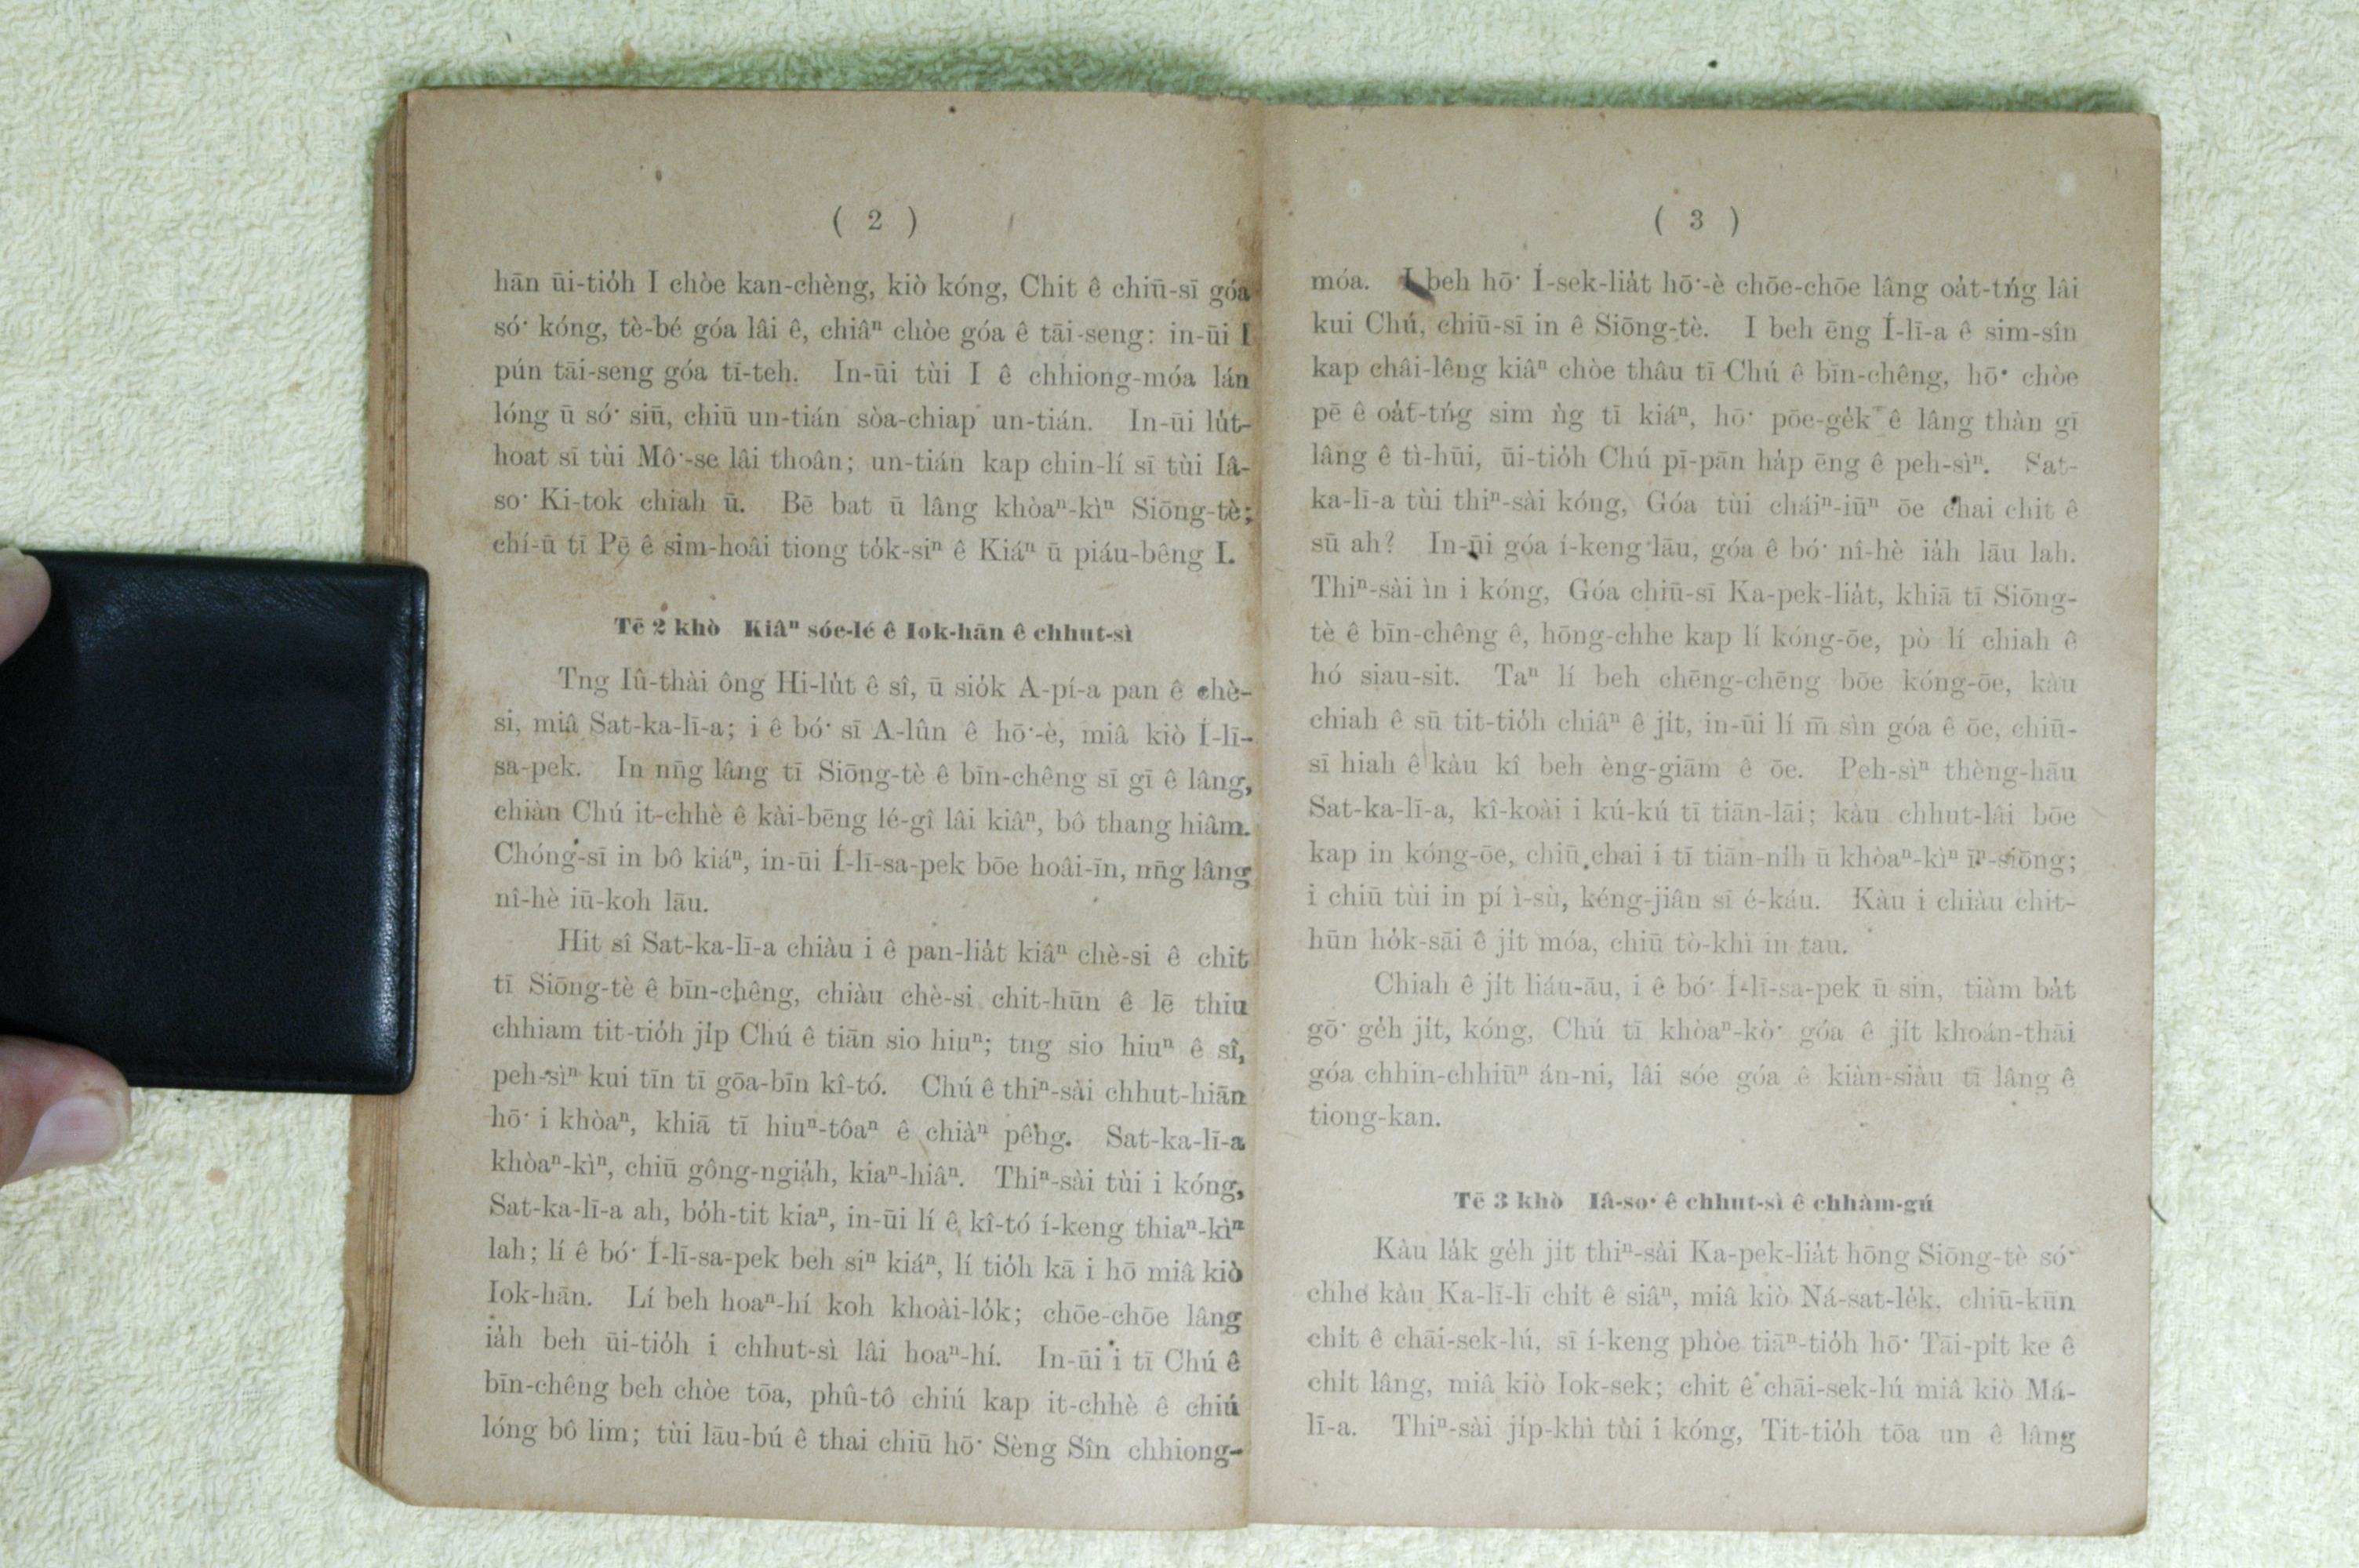 ( 2 )
hān ūi-tio̍h I chòe kan-chèng, kiò kóng, Chit ê chiū-sī góa
só͘ kóng, tè-bé góa lâi ê, chiâⁿ chòe góa ê tāi-seng: in-ūi I
pún tāi-seng góa tī-teh. In-ūi tùi I ê chhiong-móa lán
lóng ū só͘ siū, chiū un-tián sòa-chiap un-tián. In-ūi lu̍t-
hoat sī tùi Mô͘-se lâi thoân; un-tián kap chin-lí sī tùi Iâ-
so͘ Ki-tok chiah ū. Bē bat ū lâng khòaⁿ-kìⁿ Siōng-tè;
chí-ū tī Pē ê sim-hoâi tiong to̍k-siⁿ ê Kiáⁿ ū piáu-bêng I.
Tē 2 khò Kiâⁿ sóe-lé ê Iok-hān ê chhut-sì
Tng Iû-thài ông Hi-lu̍t ê sî, ū sio̍k A-pí-a pan ê chè-
si, miâ Sat-ka-lī-a; i ê bó͘ sī A-lûn ê hō͘-è, miâ kiò Í-lī-
sa-pek. In nn̄g lâng tī Siōng-tè ê bīn-chêng sī gī ê lâng,
chiàu Chú it-chhè ê kài-bēng lé-gî lâi kiâⁿ, bô thang hiâm.
Chóng-sī in bô kiáⁿ, in-ūi Í-lī-sa-pek bōe hoâi-īn, nn̄g lâng
nî-hè iū-koh lāu.
Hit sî Sat-ka-lī-a chiàu i ê pan-lia̍t kiâⁿ chè-si ê chit
tī Siōng-tè ê bīn-chêng, chiàu chè-si chit-hūn ê lē thiu
chhiam tit-tio̍h ji̍p Chú ê tiān sio hiuⁿ; tng sio hiuⁿ ê sî,
peh-sìⁿ kui tīn tī gōa-bīn kî-tó. Chú ê thiⁿ-sài chhut-hiān
hō͘ i khòaⁿ, khiā tī hiuⁿ-tôaⁿ ê chiàⁿ pêng. Sat-ka-lī-a
khòaⁿ-kìⁿ, chiū gông-ngia̍h, kiaⁿ-hiâⁿ. Thiⁿ-sài tùi i kóng,
Sat-ka-lī-a ah, bo̍h-tit kiaⁿ, in-ūi lí ê kî-tó í-keng thiaⁿ-kìⁿ
lah; lí ê bó͘ Í-lī-sa-pek beh siⁿ kiáⁿ, lí tio̍h kā i hō miâ kiò
Iok-hān. Lí beh hoaⁿ-hí koh khoài-lo̍k; chōe-chōe lâng
ia̍h beh ūi-tio̍h i chhut-sì lâi hoaⁿ-hí. In-ūi i tī Chú ê
bīn-chêng beh chòe tōa, phû-tô chiú kap it-chhè ê chiú
lóng bô lim; tùi lāu-bú ê thai chiū hō͘ Sèng Sîn chhiong-
( 3 )
móa. I beh hō͘ Í-sek-lia̍t hō͘-è chōe-chōe lâng oa̍t-tńg lâi
kui Chú, chiū-sī in ê Siōng-tè. I beh ēng Í-lī-a ê sim-sîn
kap châi-lêng kiâⁿ chòe thâu tī Chú ê bīn-chêng, hō͘ chòe
pē ê oa̍t-tńg sim ǹg tī kiáⁿ, hō͘ pōe-ge̍k ê lâng thàn gī
lâng ê tì-hūi, ūi-tio̍h Chú pī-pān ha̍p ēng ê peh-sìⁿ. Sat-
ka-lī-a tùi thiⁿ-sài kóng, Góa tùi cháiⁿ-iūⁿ ōe chai chit ê
sū ah? In-ūi góa í-keng lāu, góa ê bó͘ nî-hè ia̍h lāu lah.
Thiⁿ-sài ìn i kóng, Góa chiū-sī Ka-pek-lia̍t, khiā tī Siōng-
tè ê bīn-chêng ê, hōng-chhe kap lí kóng-ōe, pò lí chiah ê
hó siau-sit. Taⁿ lí beh chēng-chēng bōe kóng-ōe, kàu
chiah ê sū tit-tio̍h chiâⁿ ê ji̍t, in-ūi lí m̄ sìn góa ê ōe, chiū-
sī hiah ê kàu kî beh èng-giām ê ōe. Peh-sìⁿ thèng-hāu
Sat-ka-lī-a, kî-koài i kú-kú tī tiān-lāi; kàu chhut-lâi bōe
kap in kóng-ōe, chiū chai i tī tiān-ni̍h ū khòaⁿ-kìⁿ īⁿ-siōng;
i chiū tùi in pí ì-sù, kéng-jiân sī é-káu. Kàu i chiàu chit-
hūn ho̍k-sāi ê ji̍t móa, chiū tò-khì in tau.
Chiah ê ji̍t liáu-āu, i ê bó͘ Í-lī-sa-pek ū sin, tiàm ba̍t
gō͘ ge̍h ji̍t, kóng, Chú tī khòaⁿ-kò͘ góa ê ji̍t khoán-thāi
góa chhin-chhiūⁿ án-ni, lâi sóe góa ê kiàn-siàu tī lâng ê
tiong-kan.
Tē 3 khò Iâ-so͘ ê chhut-sì ê chhàm-gú
Kàu la̍k ge̍h ji̍t thiⁿ-sài Ka-pek-lia̍t hōng Siōng-tè só͘
chhe kàu Ka-lī-lī chi̍t ê siâⁿ, miâ kiò Ná-sat-le̍k, chiū-kūn
chi̍t ê chāi-sek-lú, sī í-keng phòe tiāⁿ-tio̍h hō͘ Tāi-pit ke ê
chi̍t lâng, miâ kiò Iok-sek; chit ê chāi-sek-lú miâ kiò Má-
lī-a. Thiⁿ-sài ji̍p-khì tùi i kóng, Tit-tio̍h tōa un ê lâng